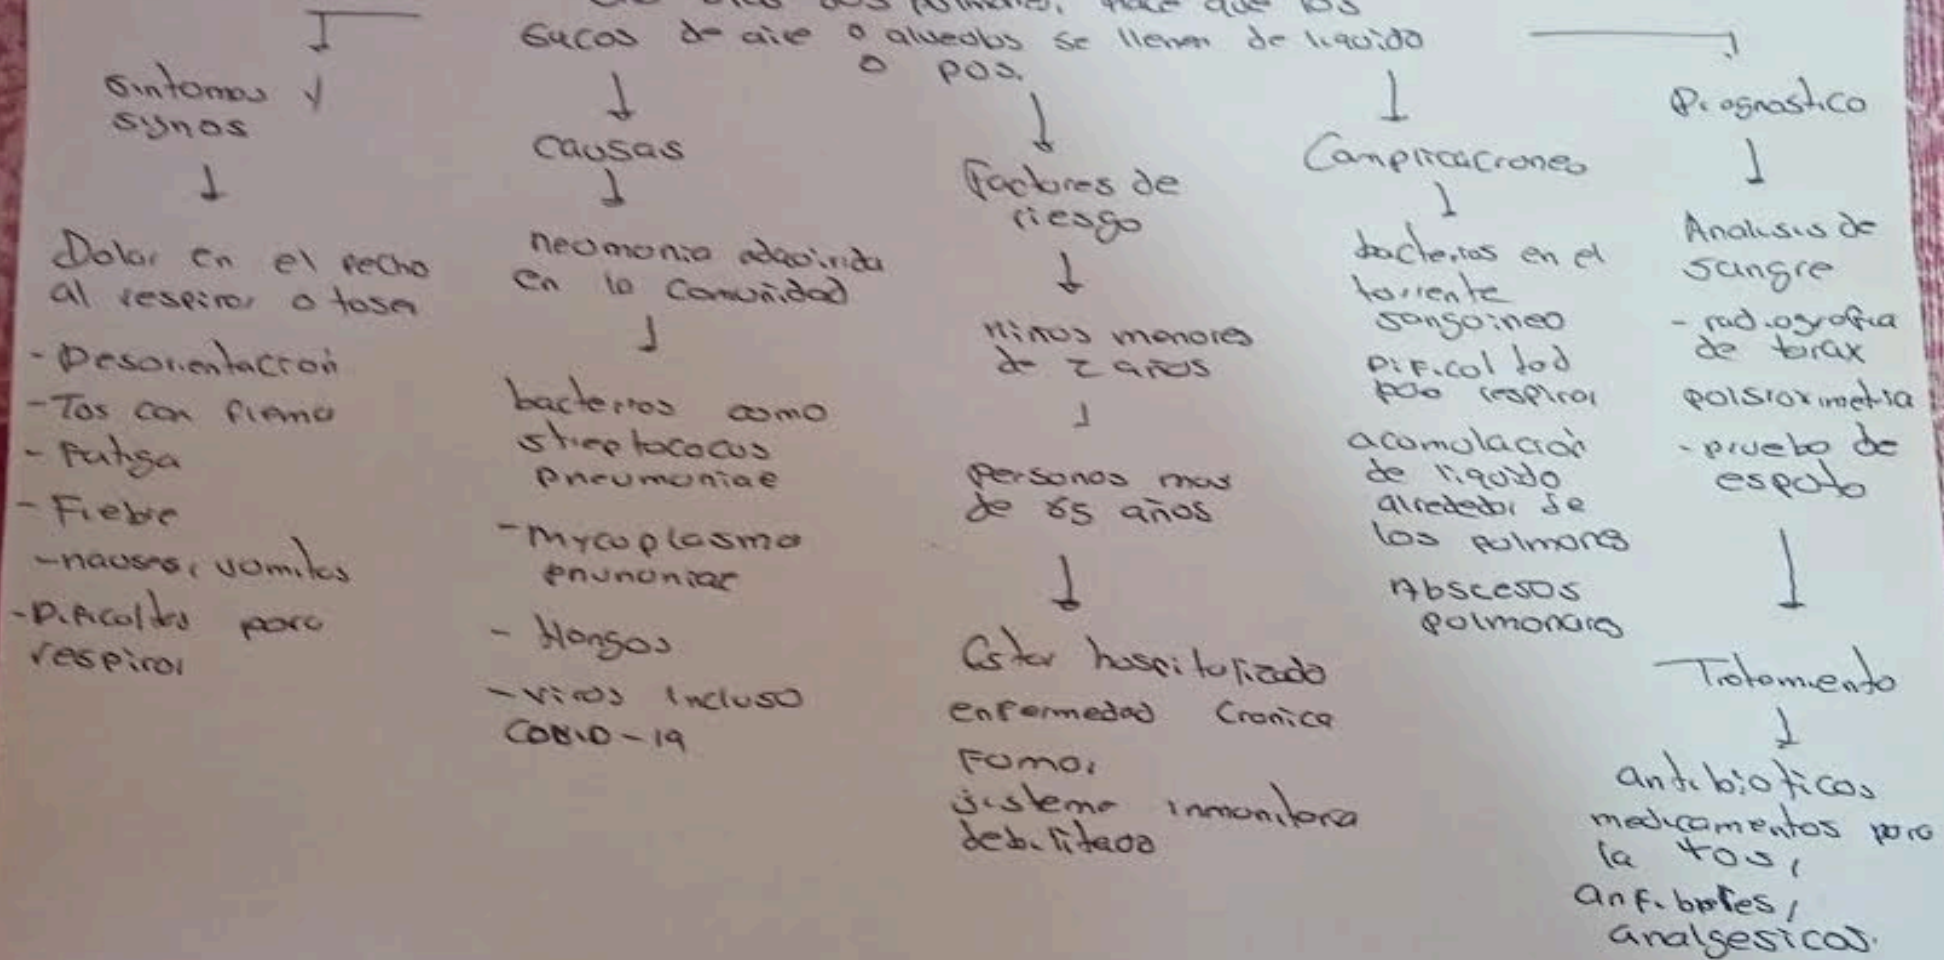 que los
sacos de aire o alveolos se llenen de liquido
o pos.
Sintomas y
synos
Dolor en el pecho
al respirar o toser
- Desorientacion
- Tos con flema
- Fatiga
- Fiebre
- nauseas, vomitos
- Dificoltes para
respirar
Causas
neomonia adquirida
en la Comunidad
bacterias como
streptococus
pneumoniae
- Mycoplasma
pnunoniae
- Hongos
- Viros incluso
COVID-19
Factores de
riesgo
niños menores
de 2 años
personas mas
de 65 años
Estar hospitalizado
enfermedad Cronica
Fumar
sisteme inmonitora
debilitado
Complicaciones
bacterias en el
torrente
sangoineo
Dificoltod
respirar
acomolación
de liquido
alrededor de
los pulmones
Abscesos
polmonares
Prognostico
Analisis de
sangre
- radiografia
de torax
polsioximetria
- prueba de
esputo
Tratamiento
antibioticos
medicamentos para
la tos,
analgesicos.